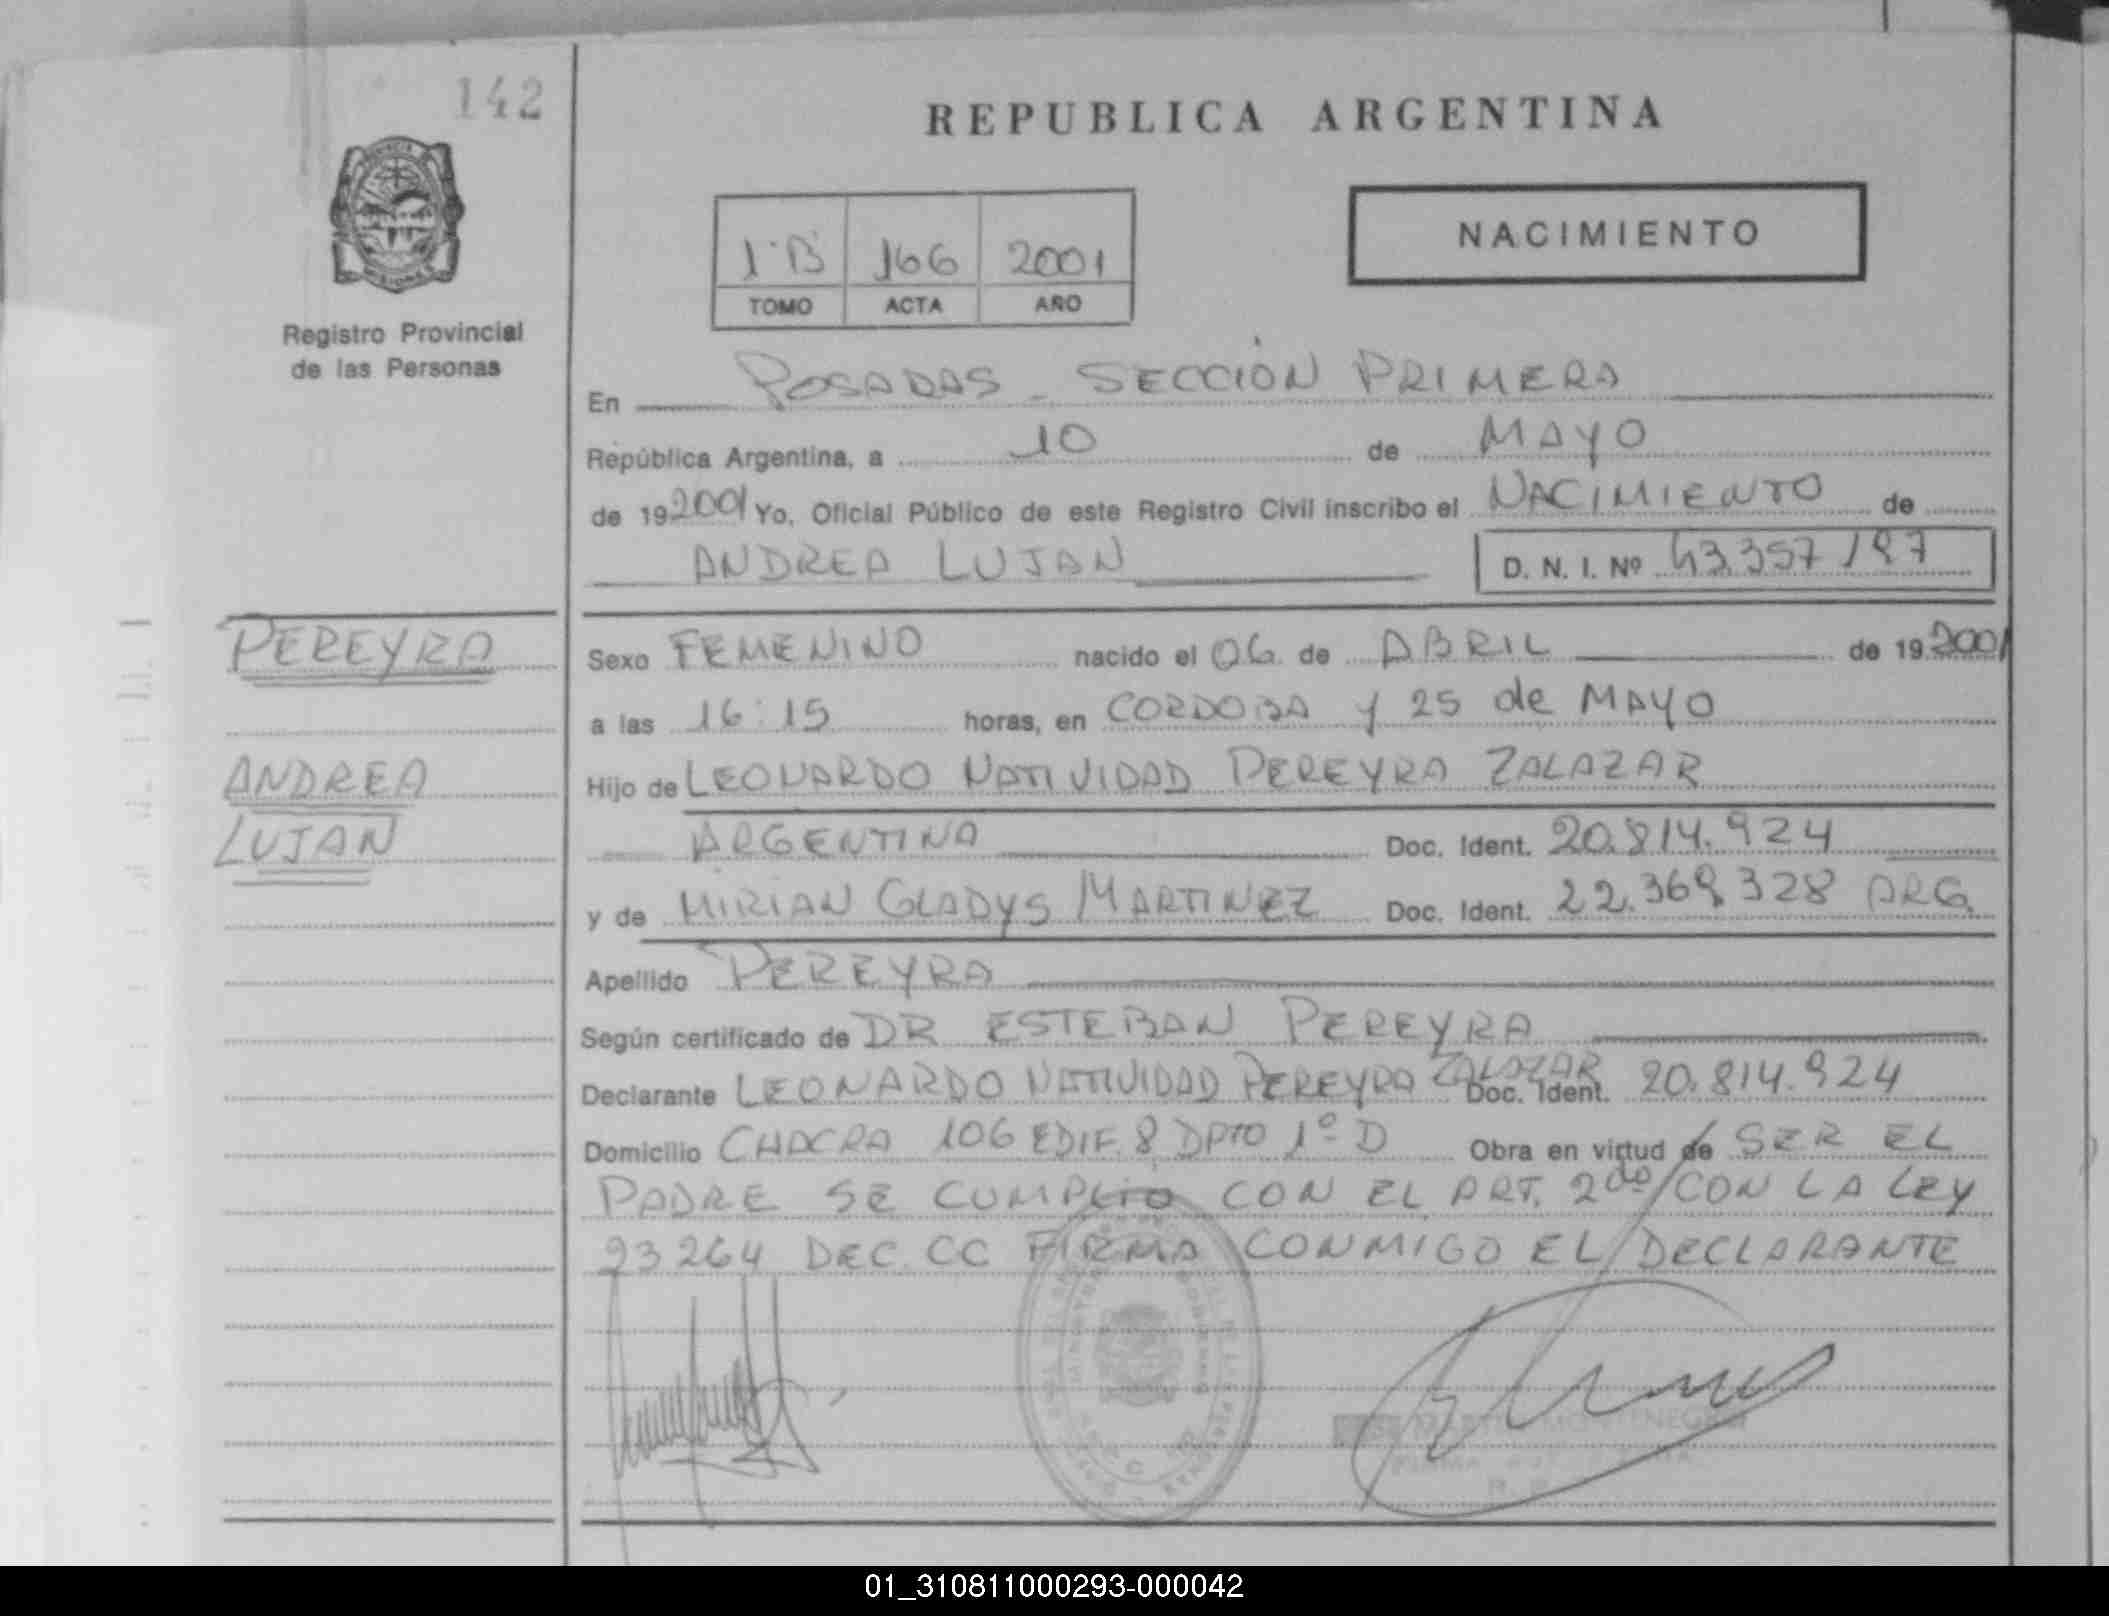 142
REPUBLICA ARGENTINA
NACIMIENTO
1ºB 166 2001
TOMO ACTA AÑO
Registro Provincial
de las Personas
En POSADAS - SECCIÓN PRIMERA
República Argentina, a 10 de MAYO
de 19 2001 Yo, Oficial Público de este Registro Civil inscribo el NACIMIENTO de
ANDREA LUJAN D. N. I. Nº 43.357/97
PEREYRA
ANDREA
LUJAN
Sexo FEMENINO nacido el 06 de ABRIL de 19 2001
a las 16:15 horas, en CORDOBA y 25 de MAYO
Hijo de LEONARDO NATIVIDAD PEREYRA ZALAZAR
ARGENTINA Doc. Ident. 20.814.924
y de MIRIAN GLADYS MARTINEZ Doc. Ident. 22.369.328 ARG.
Apellido PEREYRA
Según certificado de DR ESTEBAN PEREYRA
Declarante LEONARDO NATIVIDAD PEREYRA ZALAZAR Doc. Ident. 20.814.924
Domicilio CHACRA 106 EDIF. 8 DPTO 1º D Obra en virtud de SER EL
PADRE SE CUMPLIO CON EL ART. 2do CON LA LEY
23264 DEC. CC FIRMA CONMIGO EL DECLARANTE
MONTENEGRO
01_310811000293-000042